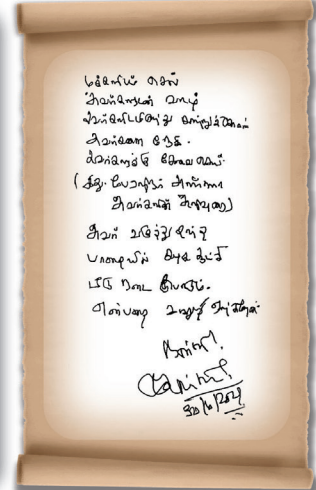 மக்களிடம் செல்
அவர்களுடன் வாழ்
அவர்களிடமிருந்து கற்றுக்கொள்
அவர்களை நேசி.
அவர்களுக்கு சேவை செய்.
(இது பேரறிஞர் அண்ணா
அவர்களின் அறிவுரை)
அவர் வகுத்து தந்த
பாதையில் கழக ஆட்சி
பீடு நடை போடும்.
என்பதை உறுதி
நன்றி!
30/6/2021